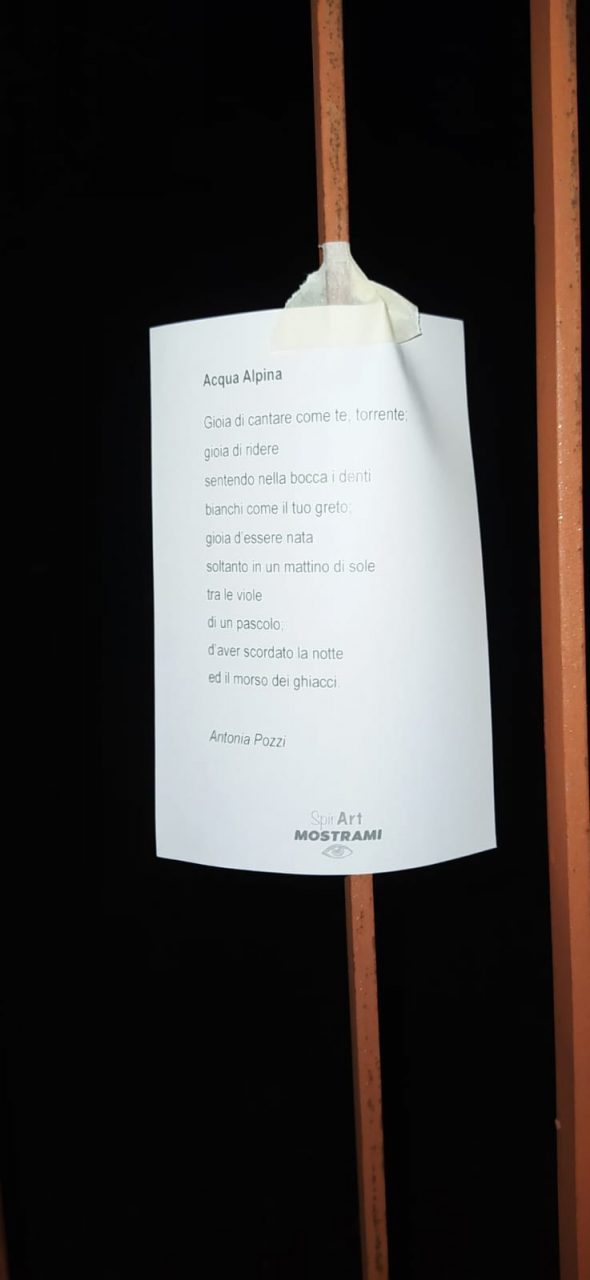 Acqua Alpina
Gioia di cantare come te, torrente;
gioia di ridere
sentendo nella bocca i denti
bianchi come il tuo greto;
gioia d'essere nata
soltanto in un mattino di sole
tra le viole
di un pascolo;
d'aver scordato la notte
ed il morso dei ghiacci.
Antonia Pozzi
SpirArt
MOSTRAMI